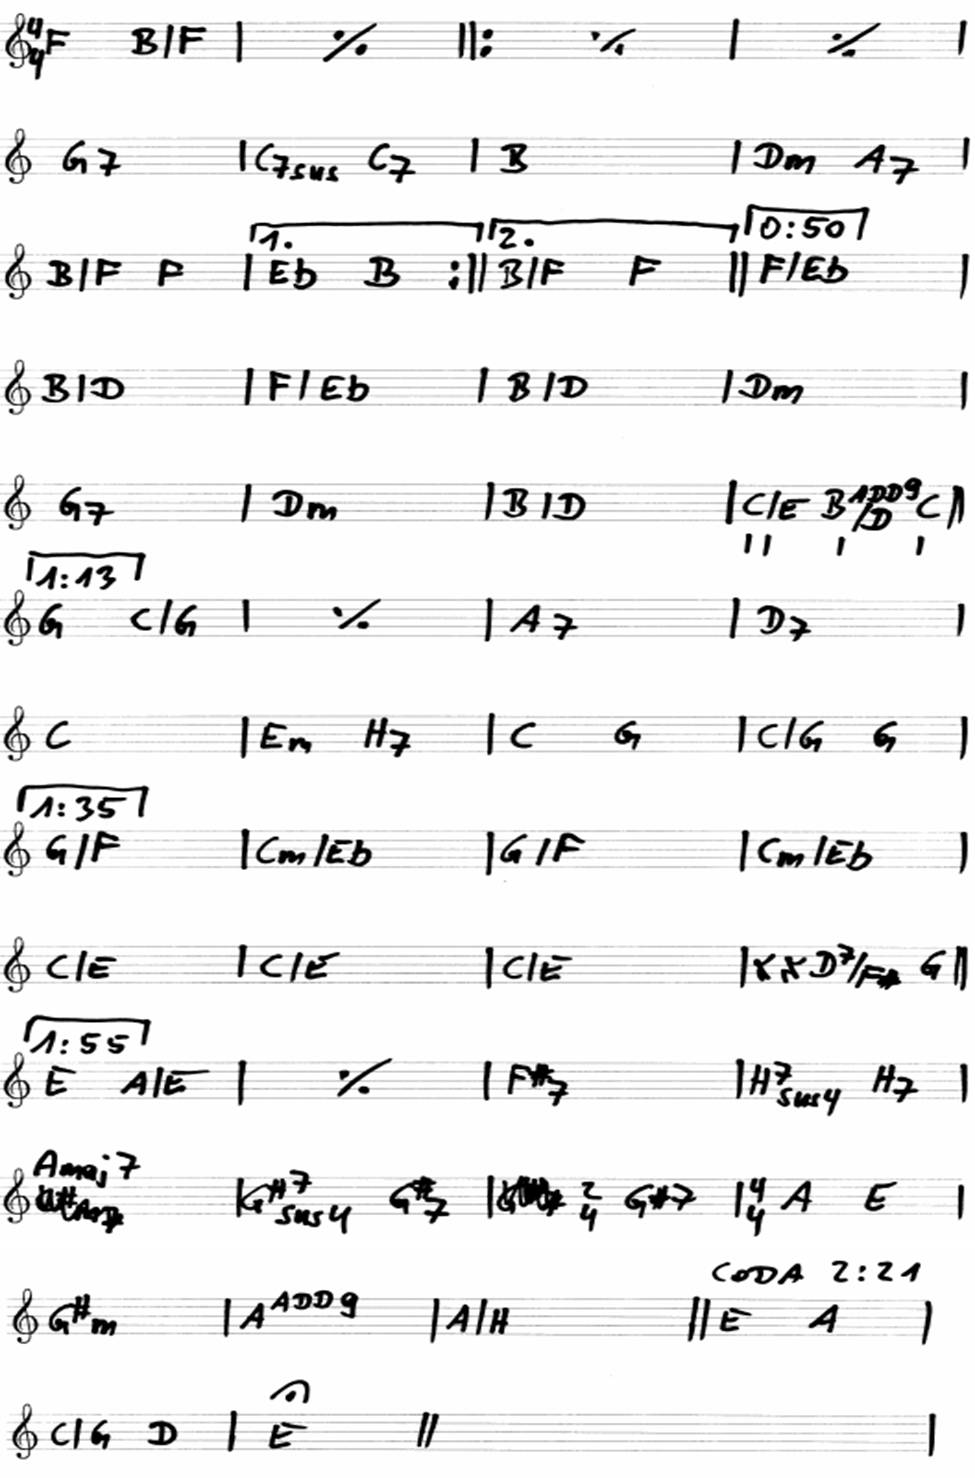 4/4 F B/F | ٪ ||: ٪ | ٪ |
G7 | C7sus C7 | B | Dm A7 |
1. 2. 0:50
B/F F | Eb B :|| B/F F || F/Eb |
B/D | F/Eb | B/D | Dm |
G7 | Dm | B/D | C/E B ADD9/D C ||
1:13
G C/G | ٪ | A7 | D7 |
C | Em H7 | C G | C/G G |
1:35
G/F | Cm/Eb | G/F | Cm/Eb |
C/E | C/E | C/E | 𝄽 𝄽 D7/F# G ||
1:55
E A/E | ٪ | F#7 | H7sus4 H7 |
Amaj7
| G#7sus4 G#7 | 2/4 G#7 | 4/4 A E |
CODA 2:21
G#m | A ADD9 | A/H || E A |
C/G D | E || |